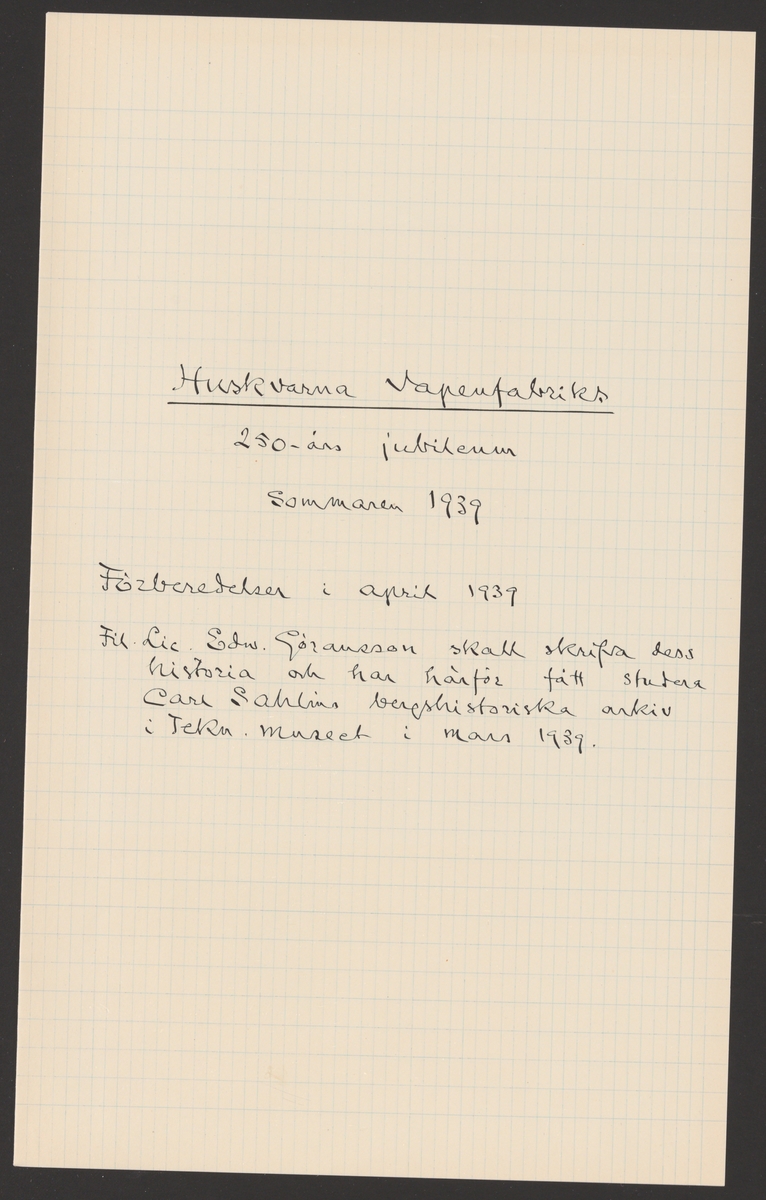 Huskvarna Vapenfabriks
250-års jubileum
Sommaren 1939
Förberedelser i april 1939
Fil. Lic. Edw. Göransson skall skrifva dess
historia och har härför fått studera
Carl Sahlins bergshistoriska arkiv
i Tekn. museet i mars 1939.